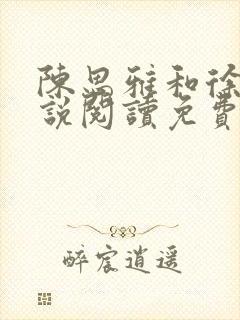 陳思雅和徐
說閱讀免費
醉宸逍遥